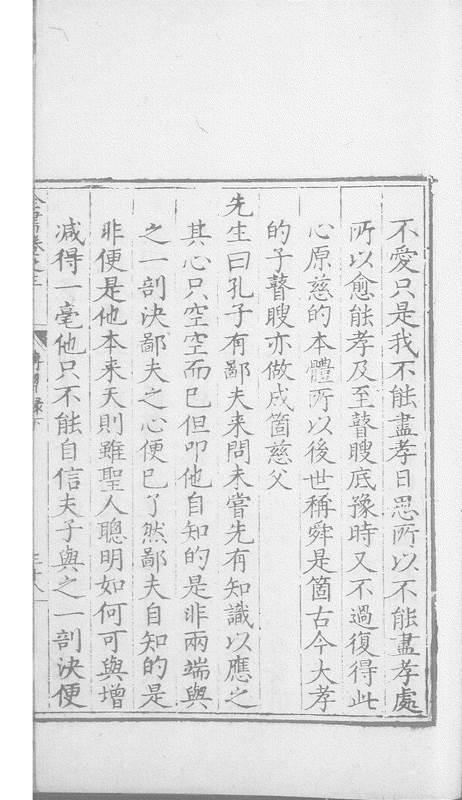 不愛只是我不能盡孝日思所以不能盡孝處
所以愈能孝及至瞽瞍底豫時又不過復得此
心原慈的本體所以後世稱舜是箇古今大孝
的子瞽瞍亦做成箇慈父
先生曰孔子有鄙夫來問未嘗先有知識以應之
其心只空空而已但叩他自知的是非兩端與
之一剖決鄙夫之心便已了然鄙夫自知的是
非便是他本來天則雖聖人聰明如何可與增
減得一毫他只不能自信夫子與之一剖決便
傳習錄下